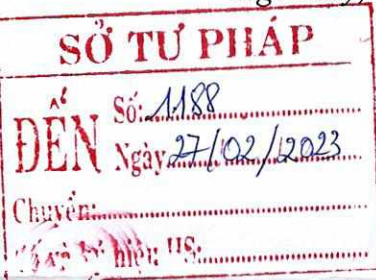 SỞ TƯ PHÁP
ĐẾN
Số: 1188
Ngày 27/02/2023
Chuyển:
ký hiệu HS: